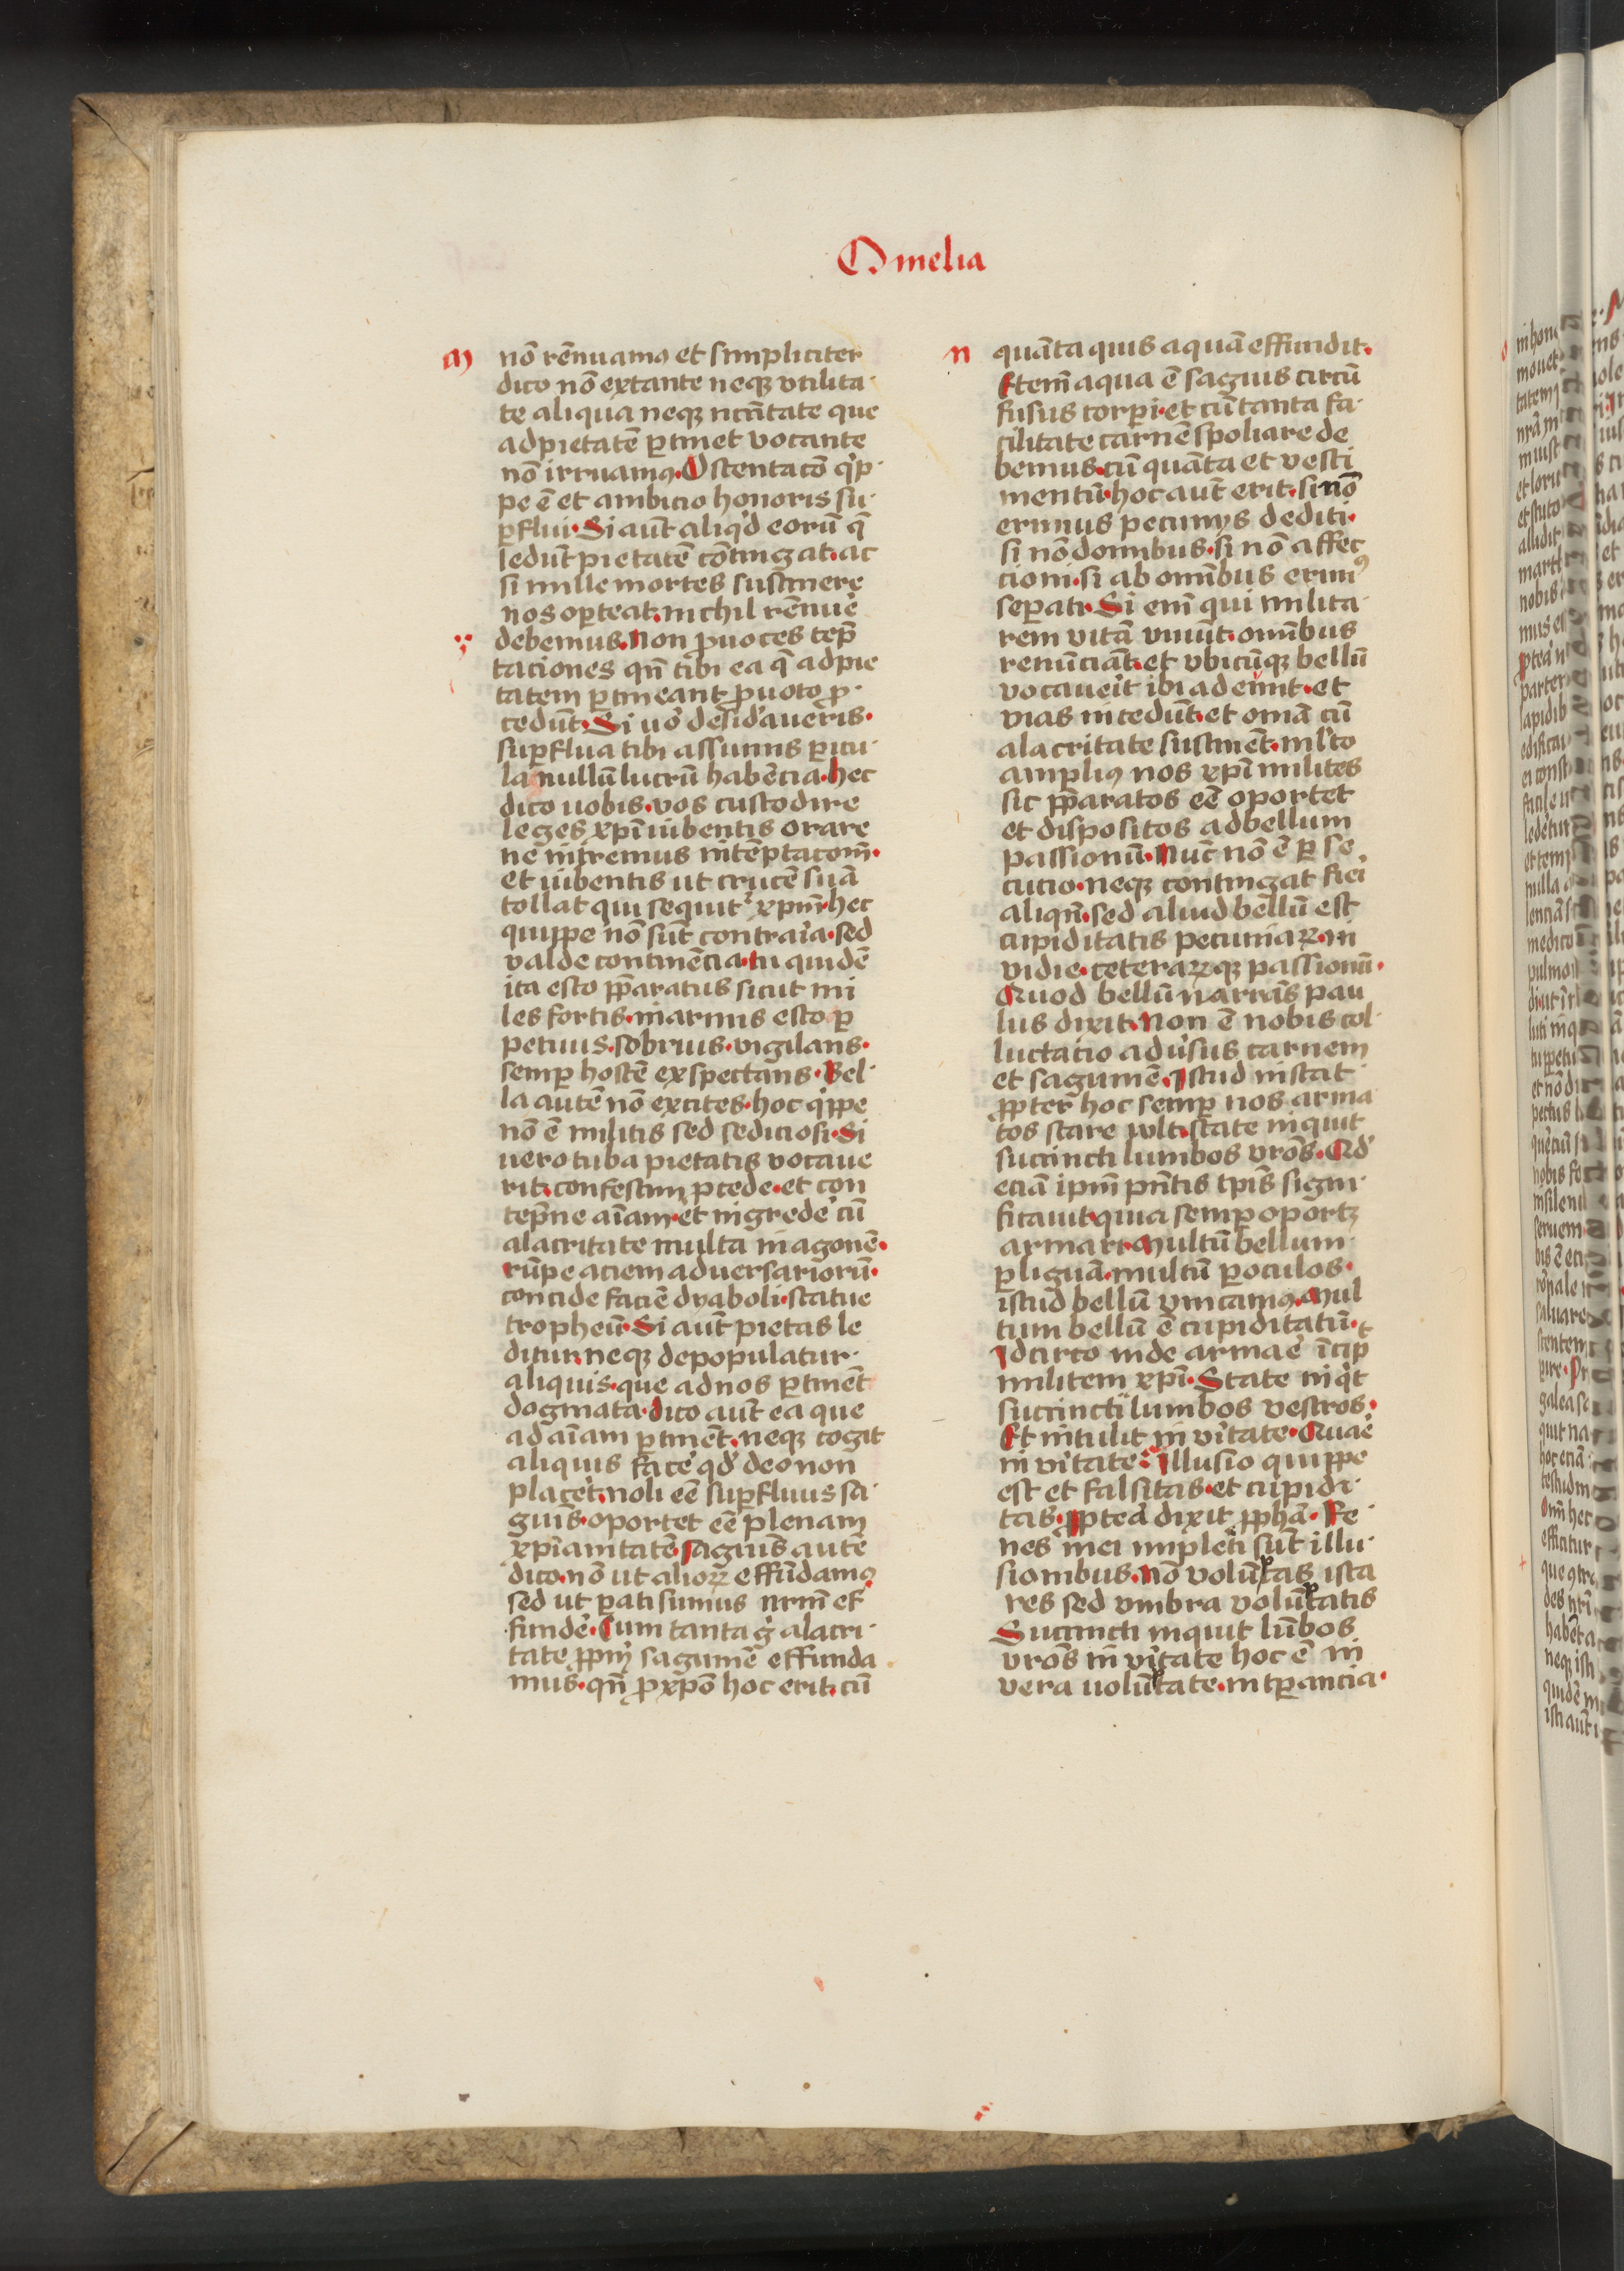 Omelia
m
nō rēnuamꝯ et simpliciter
dico nō extante neqꝫ vtilita
te aliqua neqꝫ nc̄itate que
ad pietatē ꝑtinet vocante
nō irruamꝯ. Ostentac̄o q'p
pe ē et ambicio honoris su
ꝑflui. Si aūt aliq'd eorū q̄
ledūt pietatē cōtingat. ac
si mille mortes sustinere
nos oꝑteat. nichil rēnue'
debemus. Non ꝓuoces tēp
taciones qn̄ tibi ea q̄ ad pie
tatem ꝑtineant ꝓ uoto ꝓ
cedūt. Si uo' desid'aueris.
suꝑflua tibi assumis ꝑicu
la nullū lucrū habēcia. hec
dico uobis. vos custodire
leges xp̄i iubentis orare
ne intremus in tēptacōm̄.
et iubentis ut crucē suā
tollat qui sequit' xp̄m. hec
quippe nō sūt contrar'ia. sed
valde continēcia. tu quidē
ita esto p̄paratus sicut mi
les fortis. in armis esto ꝑ
petuus. sobrius. vigilans.
semꝑ hostē exspectans. Bel
la autē nō excites. hoc q'ppe
nō ē militis sed sediciosi. Si
uero tuba pietatis vocaue
rit. confestim ꝓcede. et con
tēpne aīam. et ingrede' cū
alacritate multa in agonē.
rūpe aciem aduersariorū.
concide faciē dyaboli. statue
tropheū. Si aūt pietas le
ditur. neqꝫ depopulatur
aliquis. que ad nos ꝑtinēt
dogmata. dico aūt ea que
ad aīam ꝑtinēt. neqꝫ cogit
aliquis face' qd' deo non
placet. noli eē suꝑfluus sa
guis. oportet eē plenam
xp̄ianitatē. saguis autē
dico. nō ut alioꝝ effūdamꝯ
sed ut ꝑati simus nr̄m ef
funde'. Cum tanta g' alacri
tate ꝓpiū saguinē effunda
mus. qn̄ ꝓ xp̄o hoc erit. cū
n
quāta quis aquā effundit.
Etem̄ aqua ē saguis circū
fusus corꝑi. et cū tanta fa
cilitate carnē spoliare de
bemus. cū quāta et vesti
mentū. hoc aūt erit. si nō
erimus pecunijs dediti.
si nō domibus. si nō affec
cioni. si ab omībus erimꝯ
seꝑati. Si eni qui milita
rem vitā viuūt. omībus
renūciāt. et vbicūqꝫ bellū
vocauei't ibi adeūnt. et
vias incedūt. et omā cū
alacritate sustinēt. ml'to
ampliꝯ nos xp̄i milites
sic p̄paratos eē oportet
et dispositos ad bellum
passionū. Nūc nō ē ꝑse
cucio. neqꝫ contingat fiei'
aliqn̄. sed aliud bellū est
cupiditatis pecuniaꝝ. in
vidie. ceteraꝝqꝫ passionū.
Quod bellū narrās pau
lus dixit. Non ē nobis col
luctatio adu'sus carnem
et saguinē. Istud instat
ꝓpter' hoc semꝑ nos arma
tos stare vult. state inquit
succincti lumbos vr̄os. Qd'
eciā ipm̄ pn̄tis tp̄is signi
ficauit. quia semꝑ oportꝫ
armari. Multū bellum
ꝑ liguā. multū ꝑ oculos.
istud bellū vincamꝯ. Mul
tum bellū ē cupiditatū.
Idcirco inde armae' īcip
militem xp̄i. State inq't
succincti lumbos vestros.
Et intulit in vi'tate. Quae'
in vi'tate. Illusio quippe
est et falsitas. et cupidi
tas. ꝓptea' dixit ꝓpha. Re
nes mei impleti sūt illu
sionibus. Nō volūptas ista
res sed vmbra volūptatis
Succincti inquit lūbos
vr̄os in vi'tate hoc ē in
vera uolūptate. in tꝑancia.